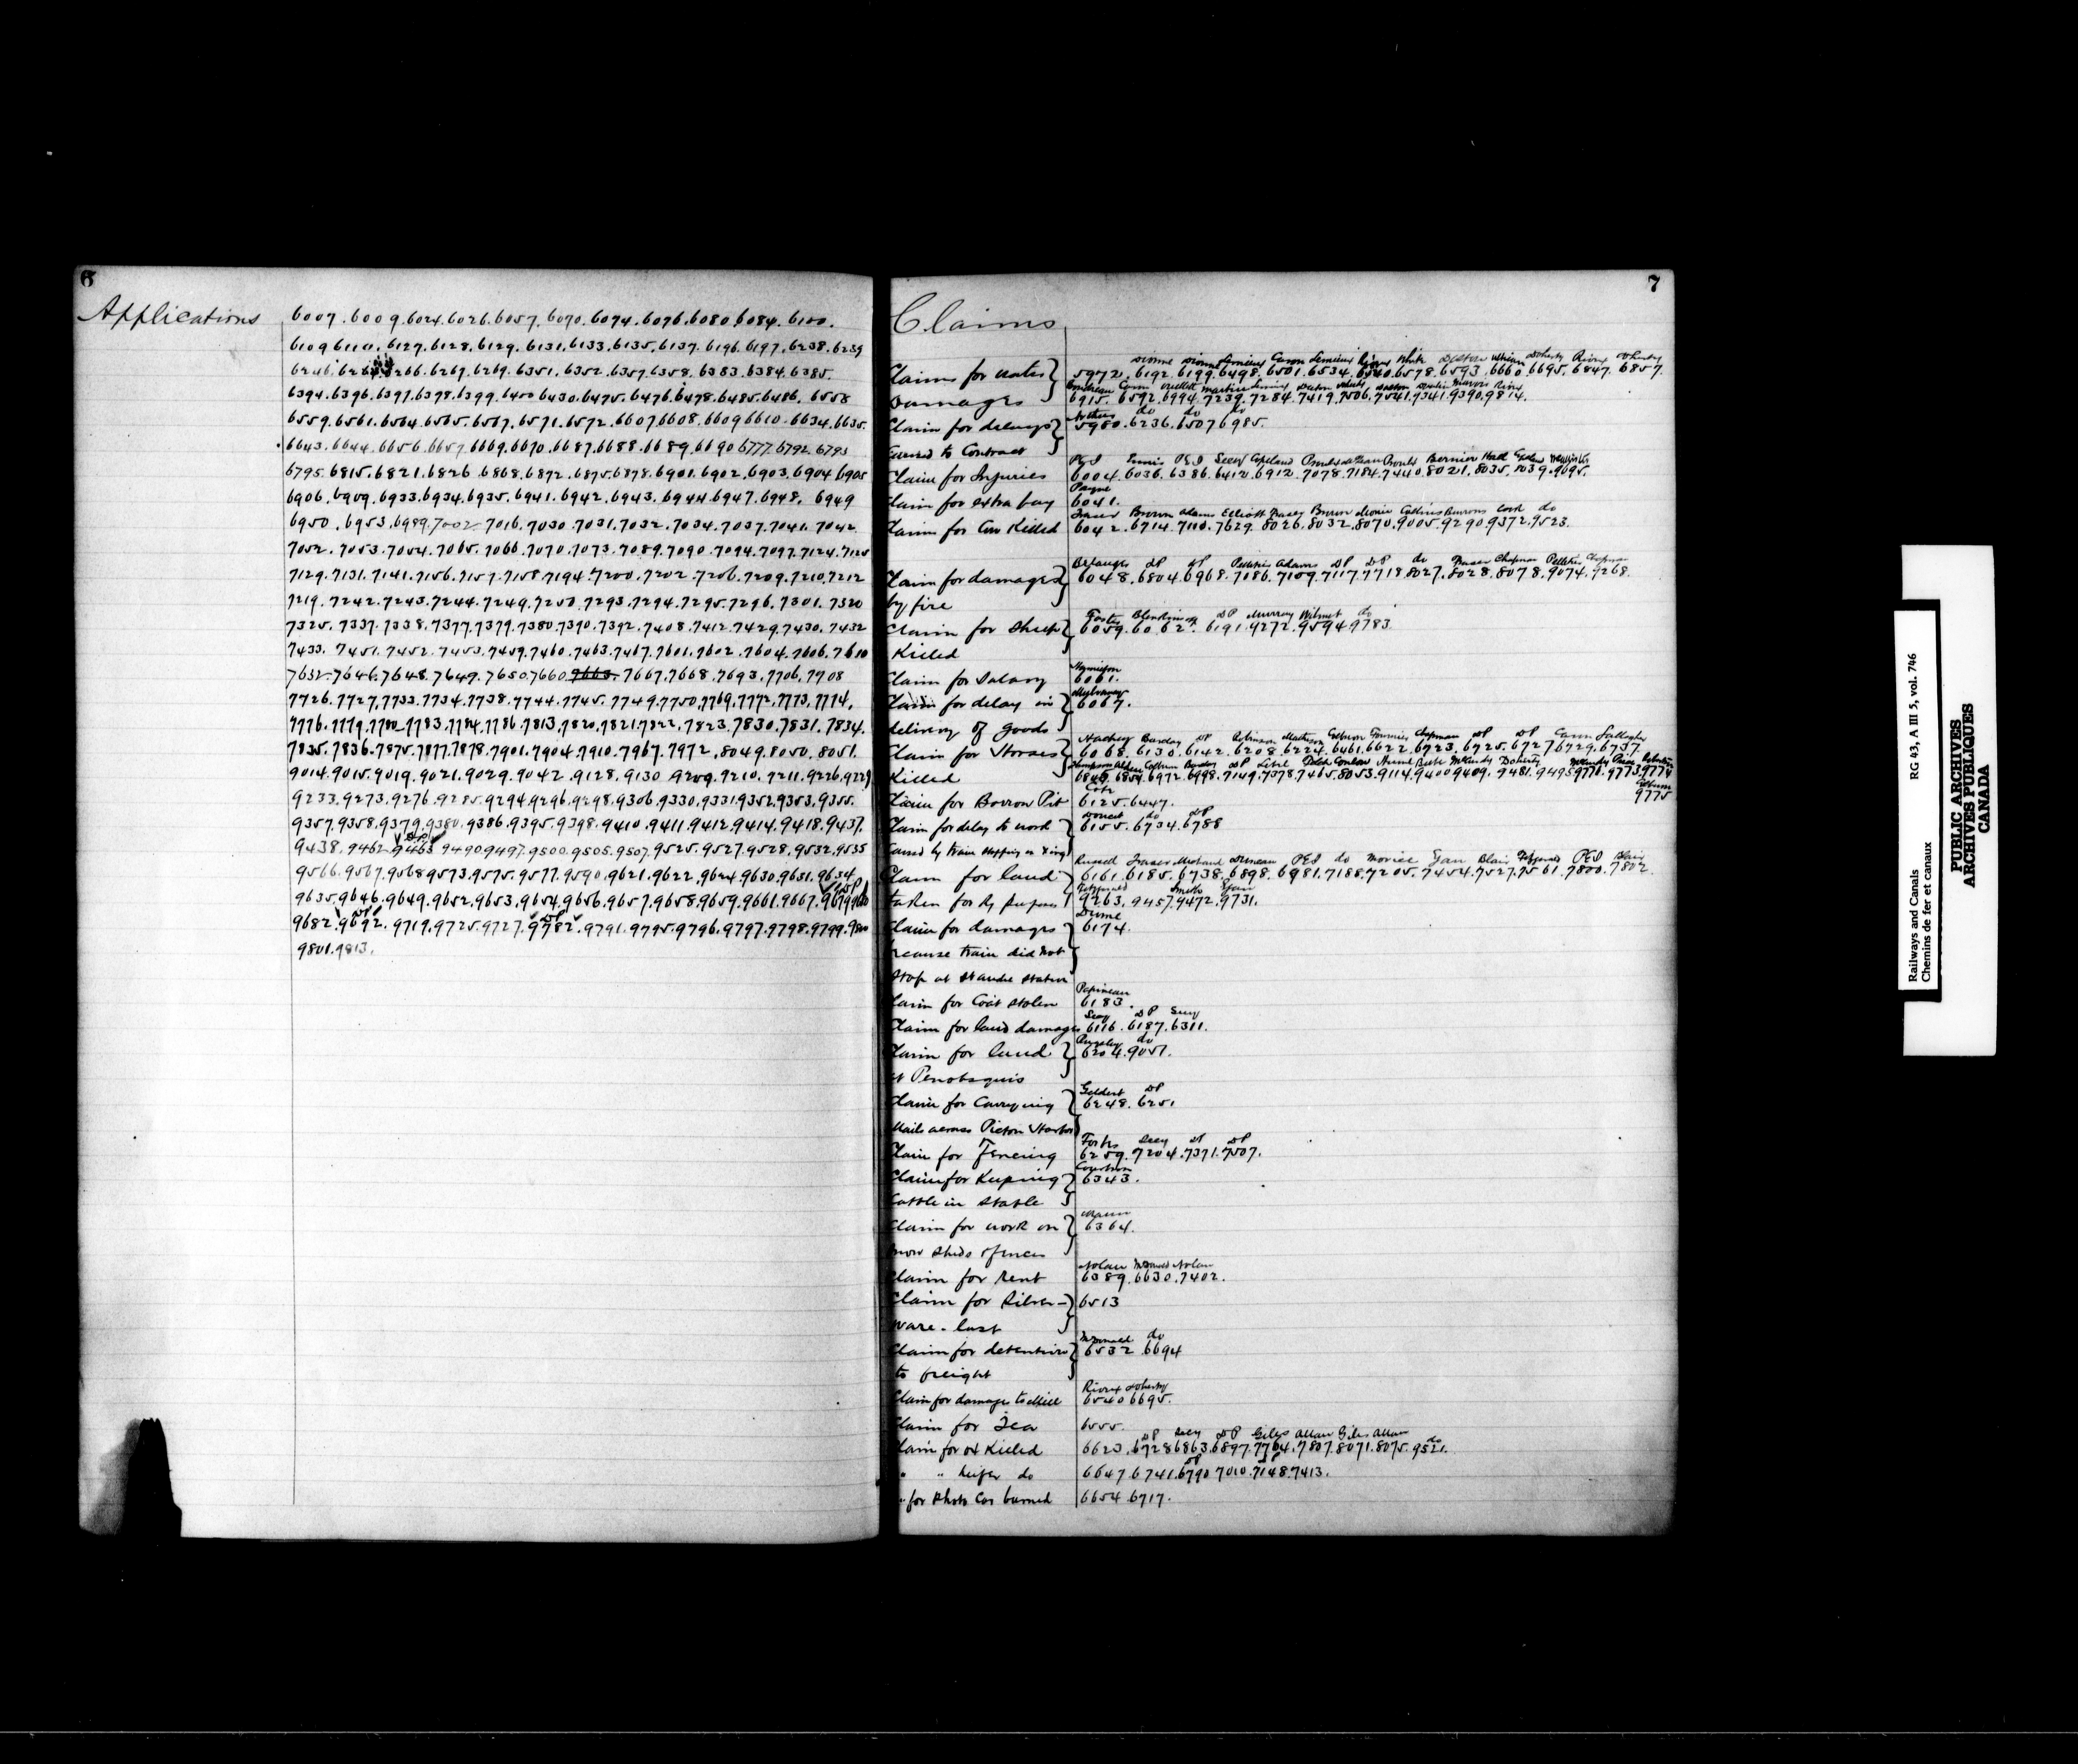 6
Applications
6007.6009.6024.6026.6057.6070.6074.6076.6080.6084.6100.
6109 6110.6127.6128.6129.6131.6133.6135.6137.6196.6197.6238.6239
6266.6267.6269.6351.6352.6357.6358.6383.6384.6385.
6394.6396.6397.6398.6399.6400.6430.6475.6476.6478.6485.6486.6558
6559.6561.6564.6565.6567.6571.6572.6607.6608.6609.6610.6634.6635.
6643.6644.6656.6657.6669.6670.6687.6688.6689.6690.6777.6792.6793
6795.6815.6821.6826.6868.6872.6875.6878.6901.6902.6903.6904.6905
6906.6909.6933.6934.6935.6941.6942.6943.6944.6947.6948.6949
6950.6953.6989.7002.7016.7030.7031.7032.7034.7037.7041.7042
7052.7053.7054.7065.7066.7070.7073.7089.7090.7094.7097.7124.7125
7129.7131.7141.7156.7157.7158.7194.7200.7202.7206.7209.7210.7212
7219.7242.7243.7244.7249.7250.7293.7294.7295.7296.7301.7320
7325.7337.7338.7377.7379.7380.7390.7392.7408.7412.7429.7430.7432
7433.7451.7452.7453.7459.7460.7463.7467.7601.7602.7604.7606.7610
7632.7646.7648.7649.7650.7660.7663.7667.7668.7693.7706.7708
7726.7727.7733.7734.7738.7744.7745.7749.7750.7769.7772.7773.7774.
7776.7779.7780.7783.7784.7786.7813.7820.7821.7822.7823.7830.7831.7834.
7835.7836.7875.7877.7878.7901.7904.7910.7967.7972.8049.8050.8051.
9014.9015.9019.9021.9029.9042.9128.9130.9209.9210.9211.9226.9229
9233.9273.9276.9285.9294.9296.9298.9306.9330.9331.9352.9353.9355.
9357.9358.9379.9380.9386.9395.9398.9410.9411.9412.9414.9418.9437.
9438.9462.9463 9490.9497.9500.9505.9507.9525.9527.9528.9532.9535
9566.9567.9568.9573.9575.9577.9590.9621.9622.9624.9630.9631.9634
9635.9646.9649.9652.9653.9654.9656.9657.9658.9659.9661.9667.9679
9682.9692.9719.9725.9727.9782.9791.9795.9796.9797.9798.9799.9800
9801.9813.
7
Claims
Dionne Lemieux Caron Lemieux Rioux White Deston Doherty Rioux Doherty
Claims for water 5972.6192.6199.6498.6501.6534.6540.6578.6593.6660.6695.6847.6857.
Damages 6915.6592.6994.7239.7284.7419.7506.7541.7341.9390.9814.
do do do
Claim for delays 5980.6236.6507 6985.
caused to Contract
PEI PEI Secy Copeland Bernier Hall
Claim for Injuries 6004.6036.6386.6412.6912.7078.7184.7440.8021.8035.9039.9695.
Payne
Claim for extra pay 6041.
Fraser Brown Adams Elliott Brown Burrows Cook do
Claim for Cow Killed 6042.6714.7110.7629.8026.8032.8070.9005.9290.9372.9523.
Belanger DP DP Pelletier Adams DP DP do Fraser Chapman Pelletier Chapman
Claim for damages 6048.6804.6968.7186.7109.7117.7718.8027.8028.8078.9074.9268.
by fire
Foster DP Murray Wilmot do
Claim for Sheep 6059.6062.6191.9272.9594.9783.
Killed
Claim for Salary 6061.
Claim for delay in 6067.
delivery of goods
Barclay DP Robinson Fournier Chapman DP DP Caron Gallagher
Claim for Horses 6068.6130.6142.6208.6224.6461.6622.6723.6725.6727 6729.6737.
Killed 6846.6859.6972.6998.7149.7378.7465.8053.9114.9400 9409.9481.9495 9771.9773.9774
9775
Cote
Claim for Borrow Pit 6125.6447.
Doucet do DP
Claim for delay to work 6155.6734.6788
Caused by train stopping on Xing
Russell Fraser Michaud Duncan PEI do Morice Egan Blair Fitzgerald PEI Blair
Claim for land 6161.6185.6738.6898.6981.7188.7205.7454.7527.7561.7800.7802.
Fitzgerald Smith Egan
taken for Ry purposes 9263.9457.9472.9731.
Dionne
Claim for damages 6174.
because train did not
stop at St Andre Station
Papineau
Claim for Coat stolen 6183.
Secy DP Secy
Claim for land damages 6116.6187.6311.
Pursley do
Claim for land 6204.9051.
at Penobsquis
Geldert DP
Claim for Carrying 6248.6251
Mails across Pictou Harbor
Forbes Secy DP DP
Claim for Fencing 6259.7204.7371.7507.
Claim for Keeping 6343.
Cattle in Stable
Mann
Claim for work on 6364.
snow sheds & fences
Nolan McDonald Nolan
Claim for rent 6389.6630.7402.
Claim for Silver- 6513
ware - lost
McDonald do
Claim for detention 6532.6694
to freight
Rioux Doherty
Claim for damages to Mill 6540 6695.
Claim for Tea 6555.
DP Secy DP Giles Allan Giles Allan do
Claim for ox Killed 6623.6728 6863.6897.7764.7807.8071.8075.9521.
DP DP
" " heifer do 6647.6741.6790 7010.7148.7413.
" for Photo Car burned 6654 6717.
Railways and Canals RG 43, A III 5, vol. 746
Chemins de fer et canaux
PUBLIC ARCHIVES
ARCHIVES PUBLIQUES
CANADA